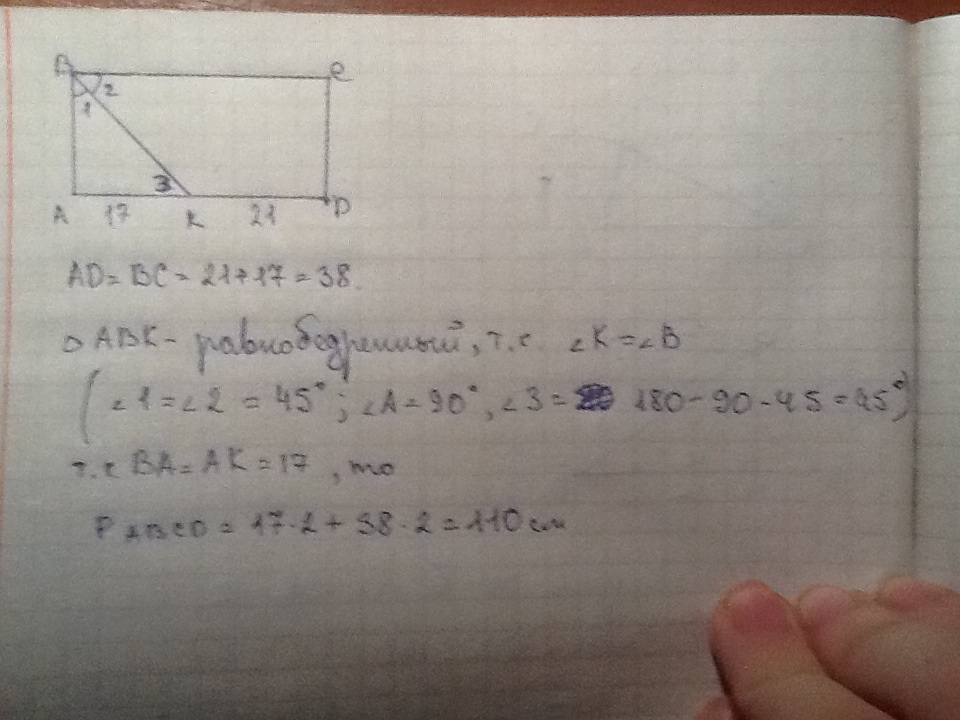 B C
1 2
3
A 17 K 21 D
AD = BC = 21+17 = 38.
△ ABK - равнобедренный, т.к. ∠K = ∠B
(∠1 = ∠2 = 45°; ∠A = 90°, ∠3 = 180 - 90 - 45 = 45°)
т.к BA = AK = 17, то
P ABCD = 17·2 + 38·2 = 110 см